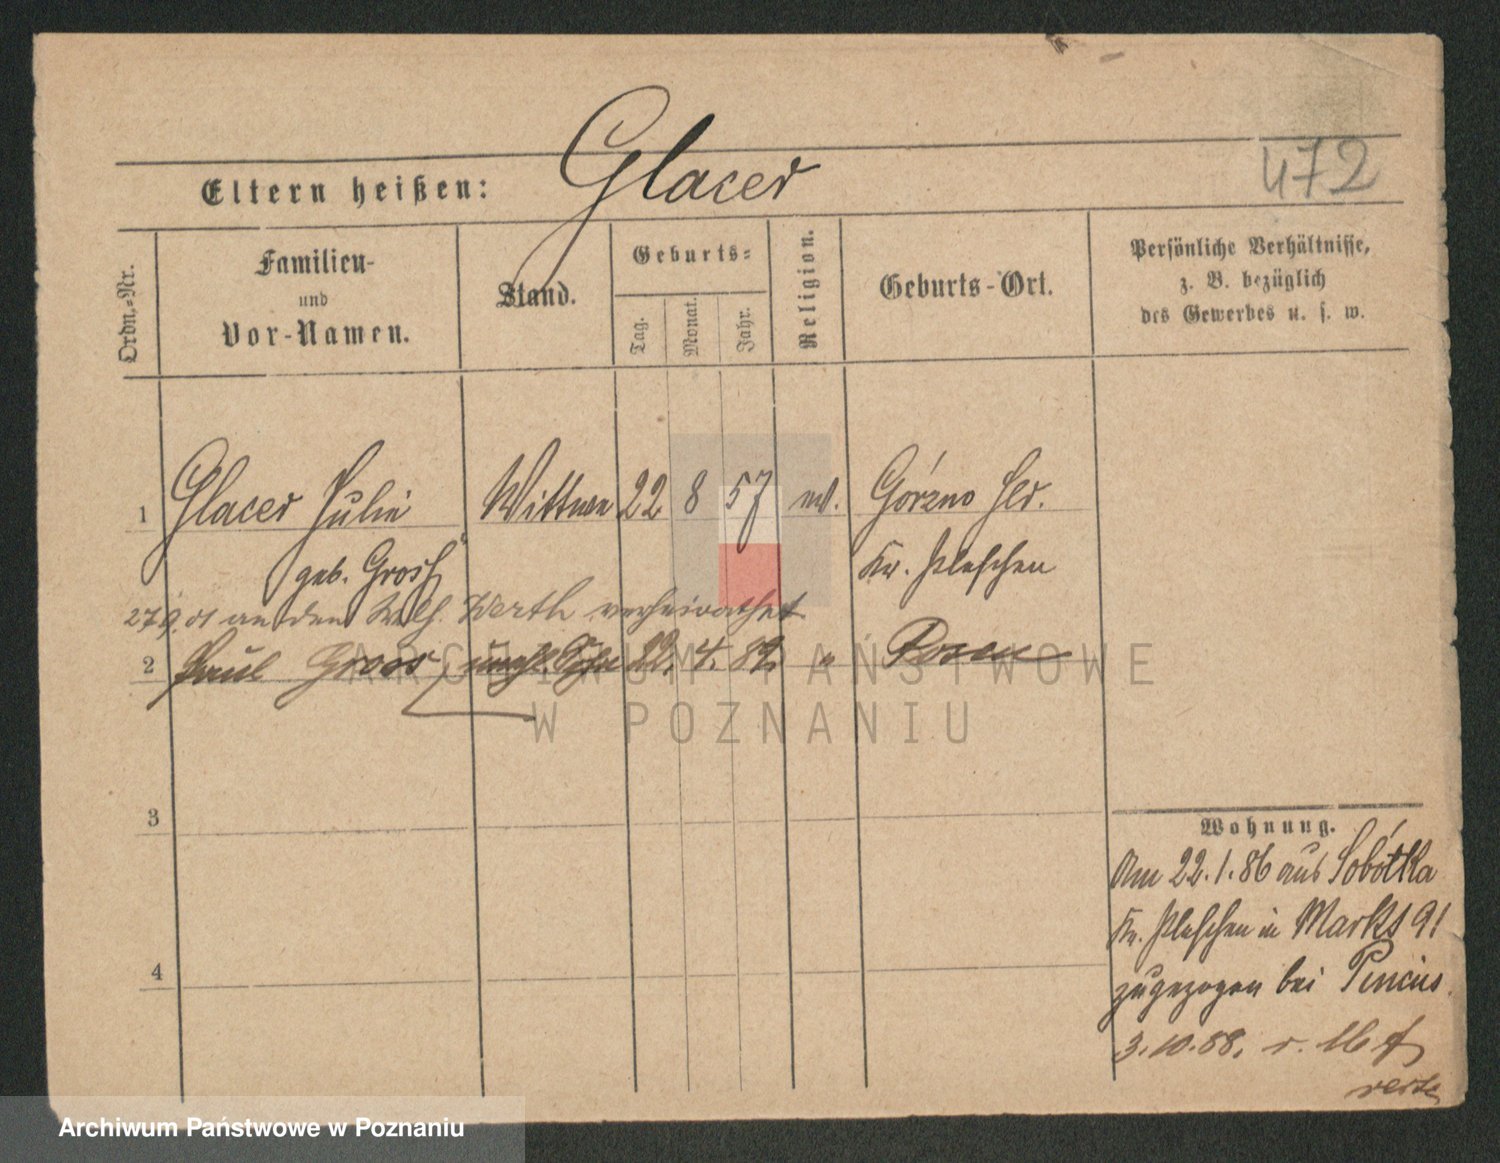 Glacer
472
Eltern heißen:
Ordn.-Nr.
Familien-
und
Vor-Namen.
Stand.
Geburts-
Tag.
Monat.
Jahr.
Religion.
Geburts-Ort.
Persönliche Verhältnisse,
z. B. bezüglich
des Gewerbes u. s. w.
1 Glacer Julie Wittwe 22 8 57 Górzno
geb. Gross Kr. Pleschen
27.9.01 an den Werth verheirathet
2 Paul Gross, unehl. Sohn 22. 4. 82. " Posen
ARCHIWUM PAŃSTWOWE
W POZNANIU
3
4
Wohnung.
Am 22.1.86 aus Sobótka
Kr. Pleschen in Markt 91
zugezogen bei Pincus.
3.10.88. v. 16
Archiwum Państwowe w Poznaniu